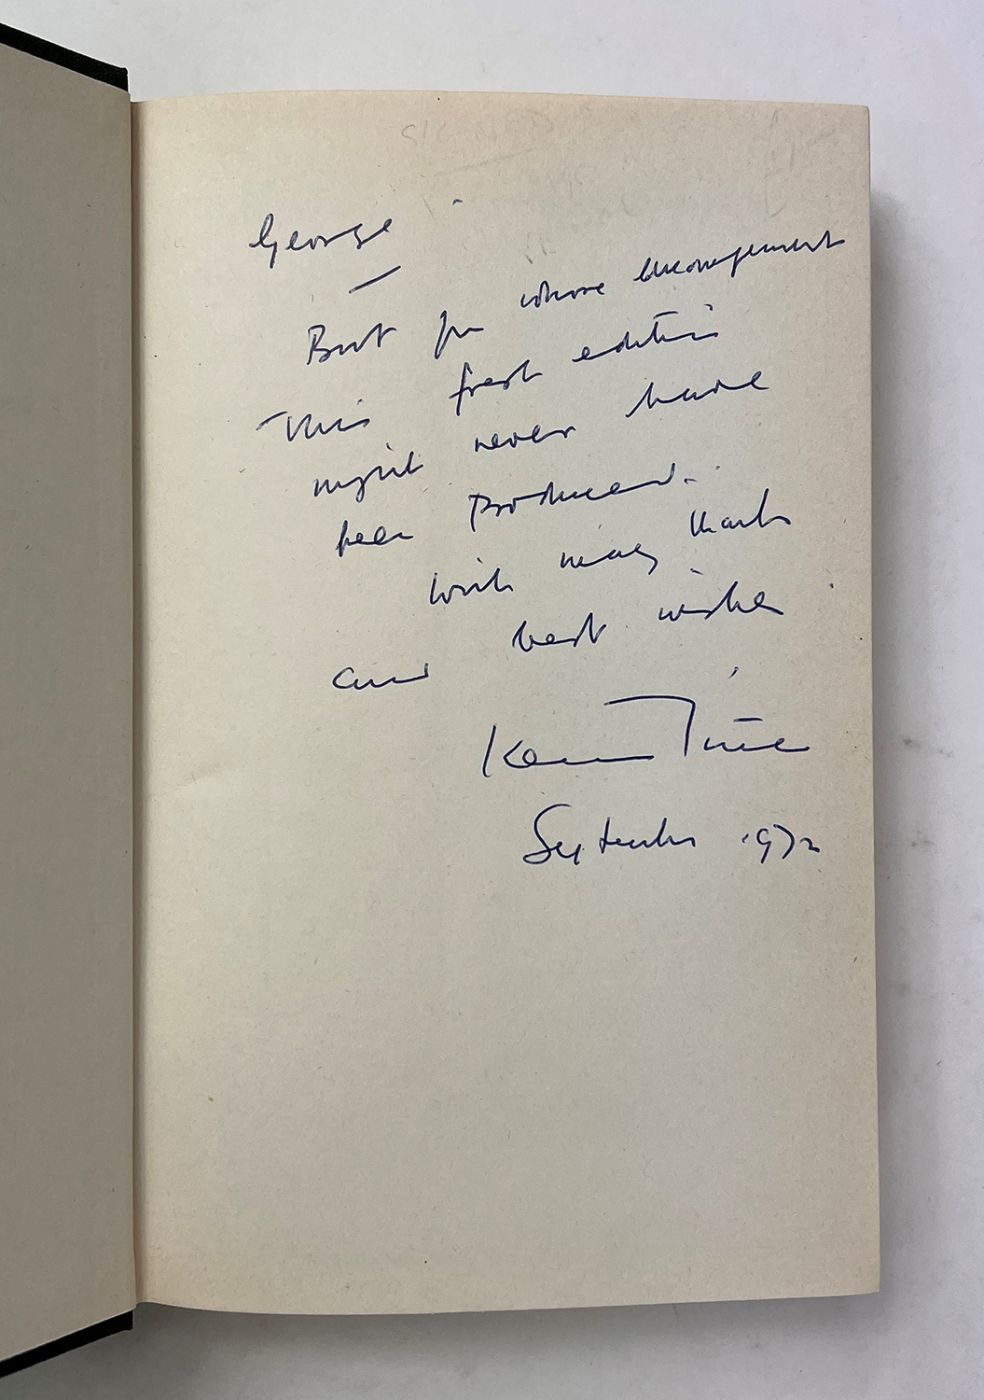 George
—
But for whose encouragement
This fresh edition
might never have
been produced.
With many thanks
and best wishes
September 1972